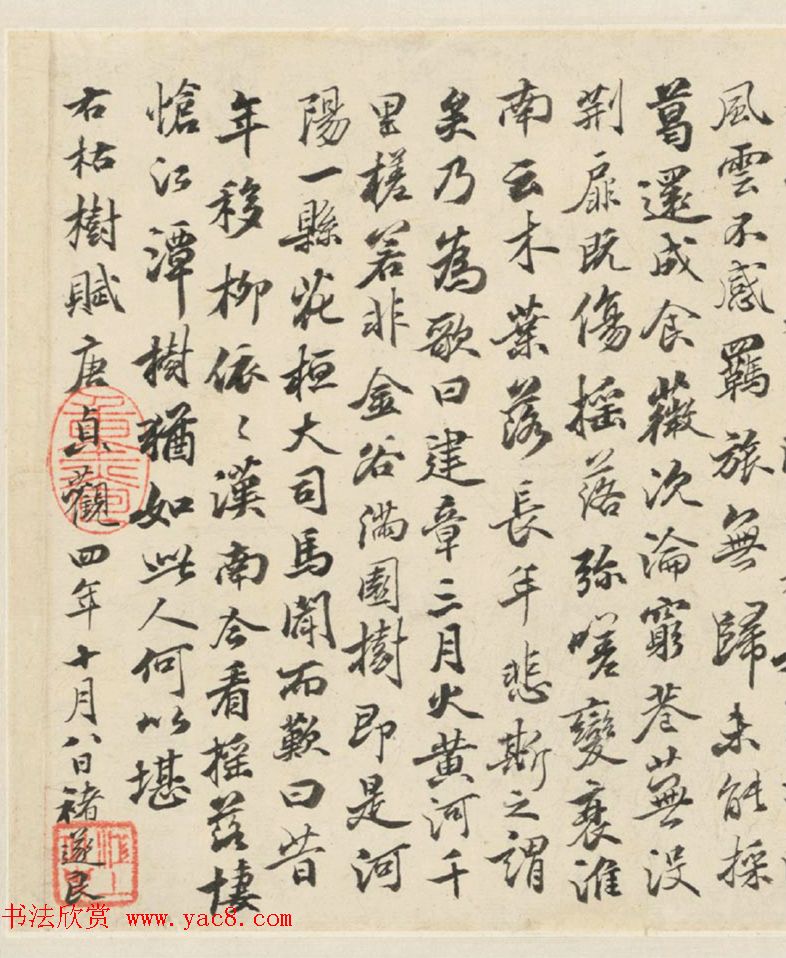 風雲不感羈旅無歸未能採
葛還成食薇沉淪窮巷蕪没
荆扉既傷揺落弥嗟變衰淮
南云木葉落長年悲斯之謂
矣乃為歌曰建章三月火黄河千
里槎若非金谷满園樹即是河
陽一縣花桓大司馬聞而歎曰昔
年移柳依〻漢南今看揺落悽
愴江潭樹猶如此人何以堪
右枯樹賦唐貞觀四年十月八日褚遂良
书法欣赏 www.yac8.com